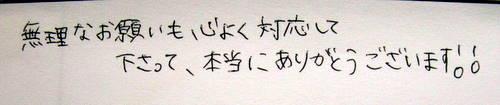 無理なお願いも、心よく対応して
下さって、本当にありがとうございます!!